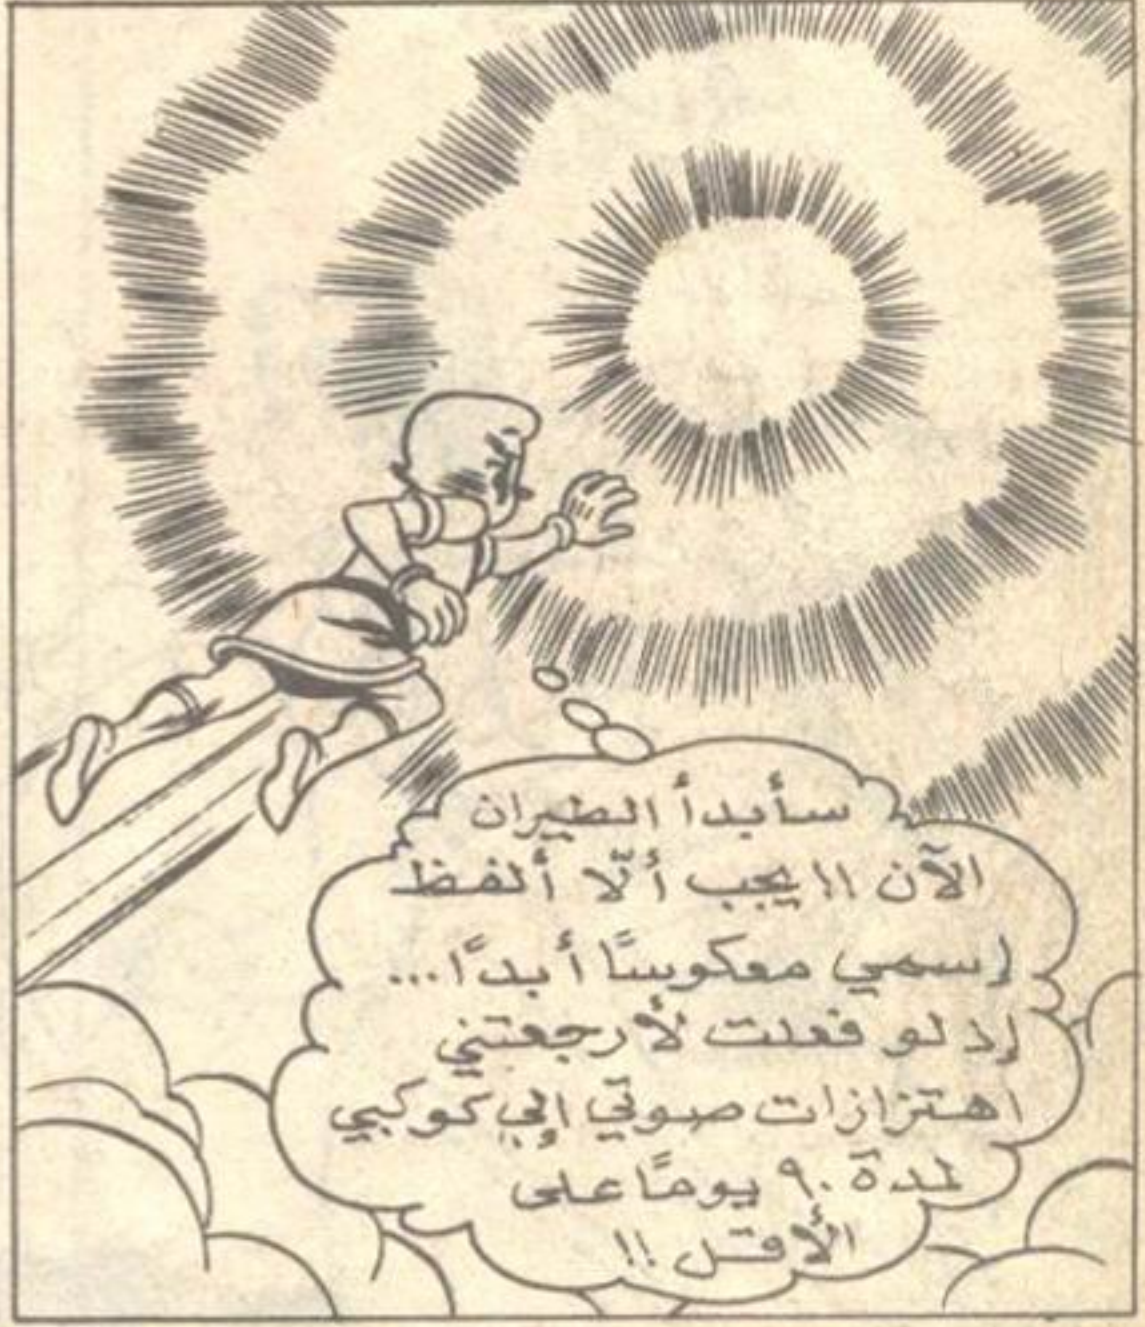 سأبدأ الطيران
الآن !! يجب ألّا ألفظ
إسمي معكوسًا أبدًا...
إذ لو فعلت لأرجعتني
اهتزازات صوتي إلى كوكبي
لمدة ٩٠ يومًا على
الأقل !!